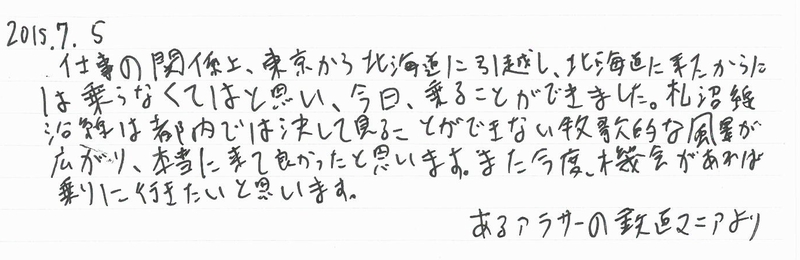 2015.7.5
仕事の関係上、東京から北海道に引越し、北海道に来たからに
は乗らなくてはと思い、今日、乗ることができました。札沼線
沿線は都内では決して見ることができない牧歌的な風景が
広がり、本当に来て良かったと思います。また今度、機会があれば
乗りに行きたいと思います。
あるアラサーの鉄道マニアより